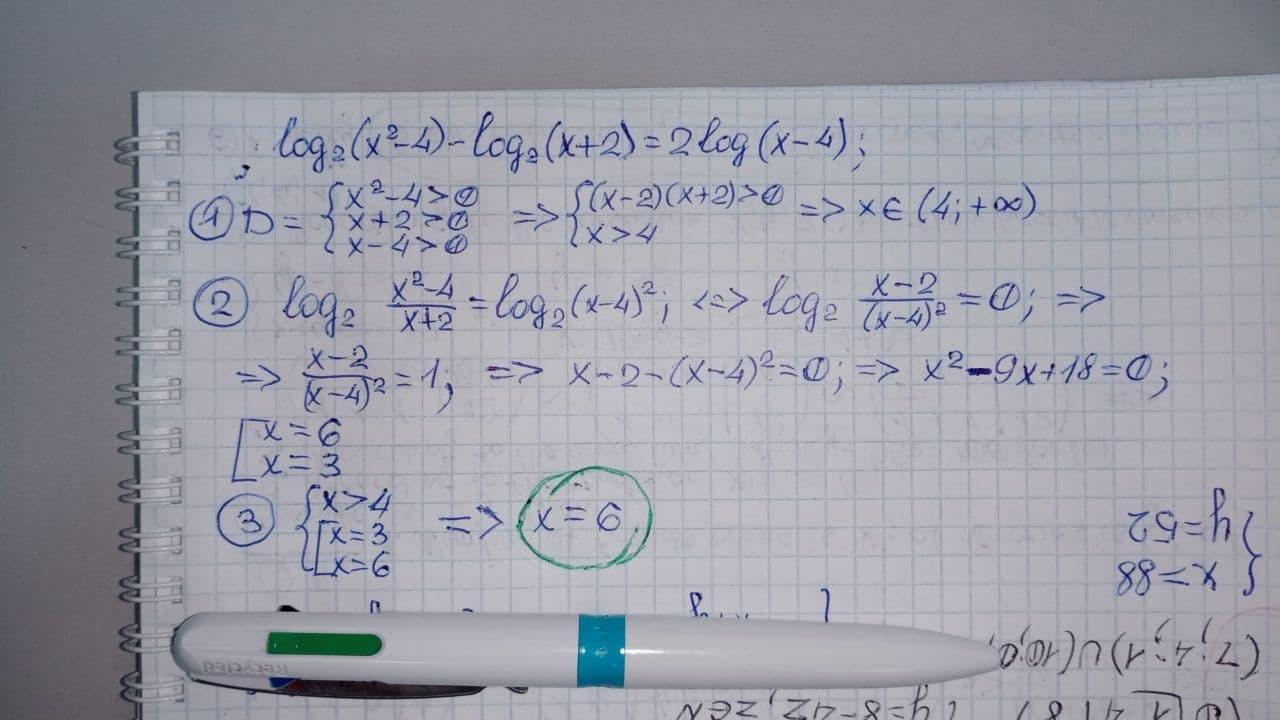 log₂(x²-4)-log₂(x+2)=2log(x-4);
① D = { x²-4>0 x+2>0 x-4>0 => { (x-2)(x+2)>0 x>4 => x∈(4;+∞)
② log₂ (x²-4)/(x+2) = log₂(x-4)²; <=> log₂ (x-2)/(x-4)² = 0; =>
=> (x-2)/(x-4)² = 1; => x-2-(x-4)²=0; => x²-9x+18=0;
[ x=6
x=3
③ { x>4 [ x=3 x=6 => x=6
{ y=52
x=88
(7; 4; 1) ∪ (10;0;
y=8-4z, z∈N
Recycled